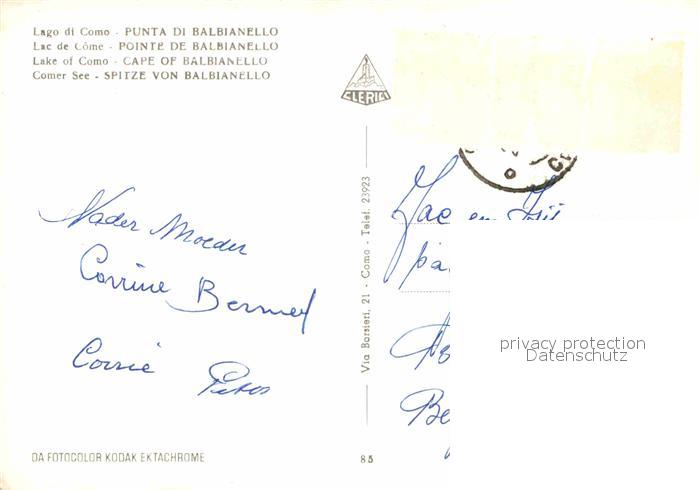 Lago di Como - PUNTA DI BALBIANELLO
Lac de Côme - POINTE DE BALBIANELLO
Lake of Como - CAPE OF BALBIANELLO
Comer See - SPITZE VON BALBIANELLO
CLERICI
Vader Moeder
Corrine
Corrie Peter
Via Borsieri, 21 - Como - Telef. 23923
Jac en
privacy protection
Datenschutz
Be
DA FOTOCOLOR KODAK EKTACHROME
85